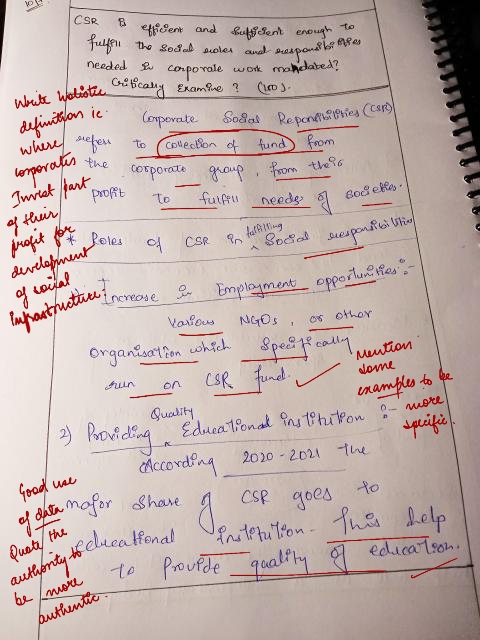 CSR is efficient and sufficient enough to
fulfill the social roles and responsibilities
needed in corporate work mandated?
Critically Examine? (150).
Write holistic
definition ie.
where
corporates
Invest part
of their
profit for
development
of social
infrastructure
Corporate Social Reponsibilities (CSR)
refers to collection of fund from
the corporate group, from their
profit to fulfill needs of societies.
* Roles of CSR in fulfilling social responsibilities
Increase in Employment opportunities:-
Various NGOs, or other
organisation which specifically
run on CSR fund.
Mention
some
examples to be
more
specific.
2) Providing Quality Educational institution :-
According 2020-2021 the
major share of CSR goes to
educational institution. This help
to provide quality of education.
Good use
of data
Quote the
authority to
be more
authentic.